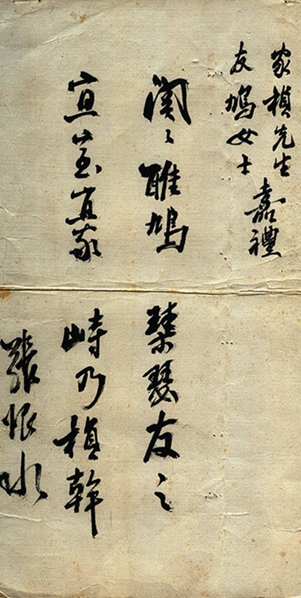 家楨先生
友鳩女士
嘉禮
關〻雎鳩 琹瑟友之
宜室宜家 峙乃楨幹
張恨水